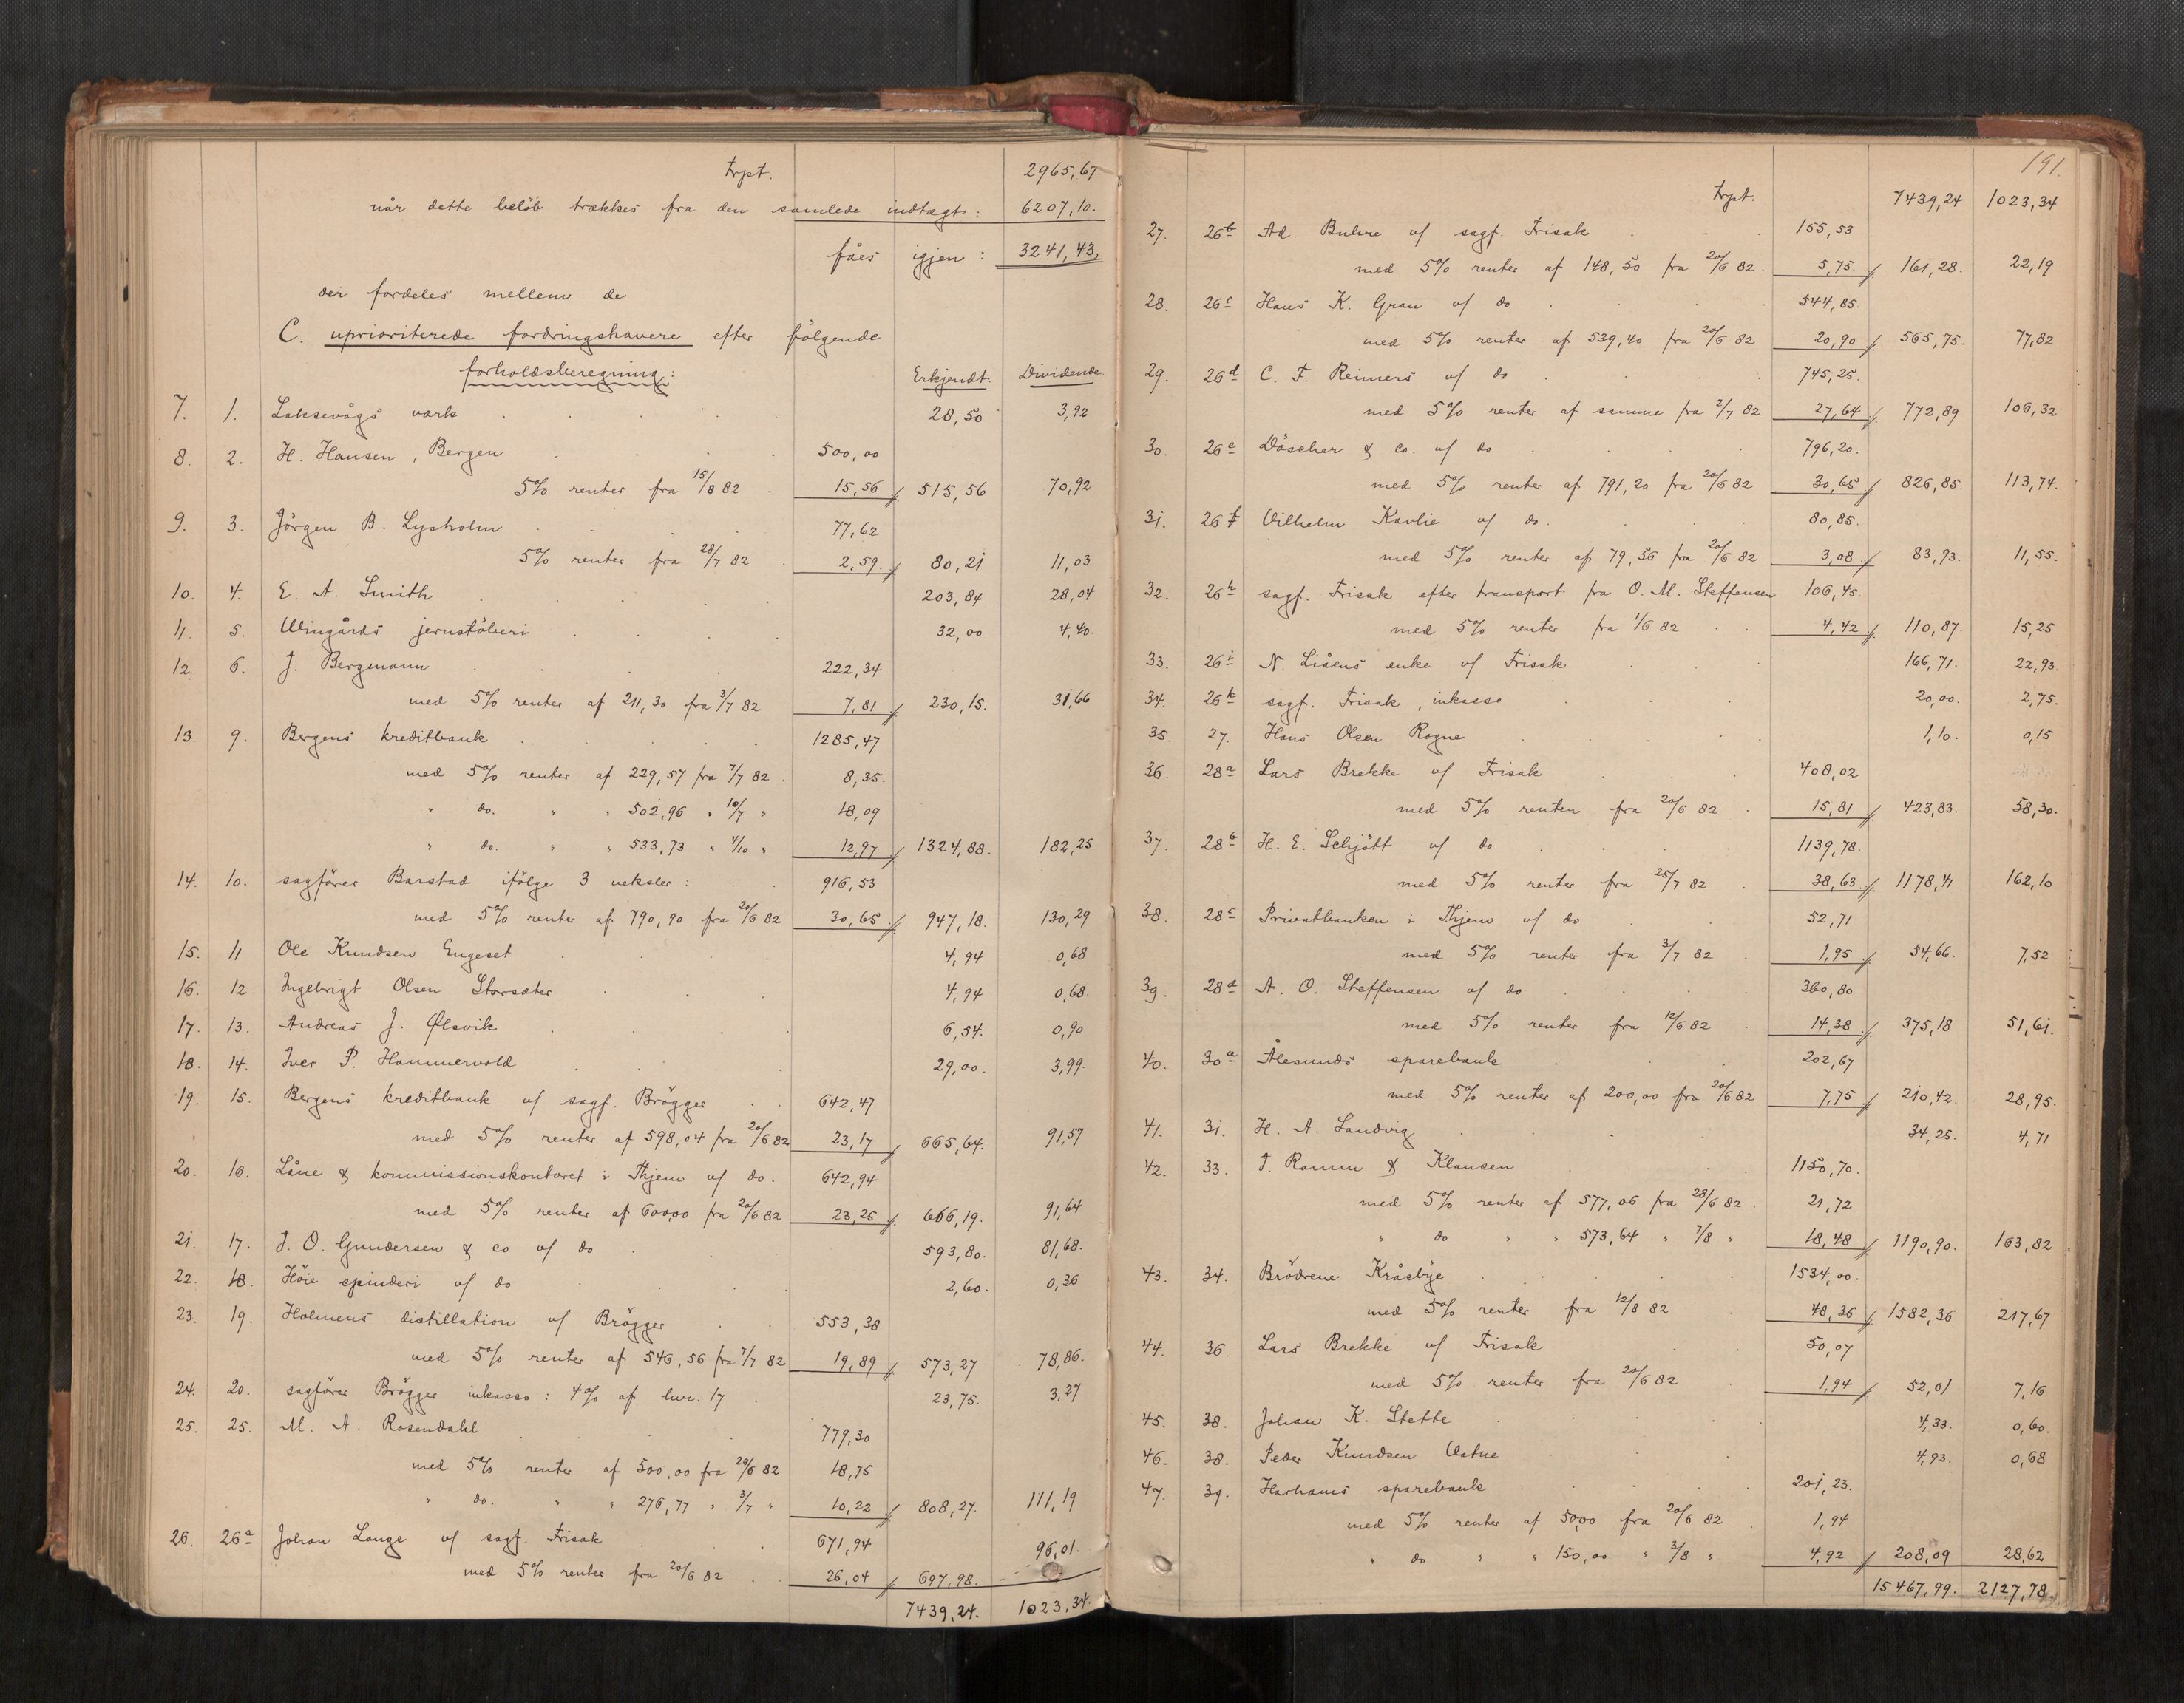 Trpt. 2965,67.
når dette beløb trækkes fra den samlede indtægt: 6207,10.
fåes igjen: 3241,43.
der fordeles mellem de
C. uprioriterede fordringshavere efter følgende
forholdsberegning: Erkjendt. Dividende.
7. 1. Laksevågs værk 28,50 3,92
8. 2. H. Hansen, Bergen 500,00
5% renter fra 15/8 82 15,56 515,56 70,92
9. 3. Jörgen B. Lysholm 77,62
5% renter fra 28/7 82 2,59. 80,21 11,03
10. 4. E. A. Smith 203,84 28,04
11. 5. Wingårds jernstöberi 32,00 4,40.
12. 6. J. Bergmann 222,34
med 5% renter af 211,30 fra 3/7 82 7,81 230,15. 31,66
13. 9. Bergens kreditbank 1285,47
med 5% renter af 229,57 fra 7/7 82 8,35.
" do. " " 502,96 " 10/7 " 18,09
" do. " " 533,73 " 4/10 " 12,97 1324,88. 182,25
14. 10. sagförer Barstad ifölge 3 veksler: 916,53
med 5% renter af 790,90 fra 20/6 82 30,65 947,18. 130,29
15. 11 Ole Knudsen Engeset 4,94 0,68
16. 12 Ingebrigt Olsen Storsæter 4,94 0,68.
17. 13. Andreas J. Ølsvik 6,54. 0,90
18. 14. Iver P. Hammervold 29,00. 3,99.
19. 15. Bergens kreditbank v/ sagf. Brögger 642,47
med 5% renter af 598,04 fra 20/6 82 23,17 665,64. 91,57
20. 16. Låne & kommissionskontoret i Thjem v/ do. 642,94
med 5% renter af 600,00 fra 20/6 82 23,25 666,19. 91,64
21. 17. J. O. Gundersen & co v/ do 593,80. 81,68.
22. 18. Höie spinderi v/ do 2,60. 0,36
23. 19. Holmens distillation v/ Brögger 553,38
med 5% renter af 546,56 fra 7/7 82 19,89 573,27 78,86.
24. 20. sagförer Brögger inkasso: 4% af lnr. 17 23,75. 3,27
25. 25. M. A. Rosendahl 779,30
med 5% renter af 500,00 fra 20/6 82 18,75
" do. " " 276,77 " 3/7 " 10,22 808,27. 111,19
26. 26a Johan Lange v/ sagf. Frisak 671,94 96,01.
med 5% renter fra 20/6 82 26,04 697,98.
7439,24. 1023,34.
191.
Trpt. 7439,24 1023,34
27. 26b Ad. Buhre v/ sagf. Frisak 155,53
med 5% renter af 148,50 fra 20/6 82. 5,75. 161,28. 22,19
28. 26c Hans K. Gran v/ do 544,85.
med 5% renter af 539,40 fra 20/6 82 20,90 565,75. 77,82
29. 26d C. F. Reimers v/ do 745,25.
med 5% renter af samme fra 2/7 82 27,64 772,89 106,32
30. 26e Döscher & co. v/ do 796,20.
med 5% renter af 791,20 fra 20/6 82 30,65 826,85. 113,74.
31. 26f Vilhelm Kavlie v/ do. 80,85.
med 5% renter af 79,56 fra 20/6 82 3,08 83,93. 11,55.
32. 26h sagf. Frisak efter transport fra O. M. Steffensen 106,45.
med 5% renter fra 1/6 82 4,42 110,87. 15,25
33. 26i N. Liåens enke v/ Frisak 166,71. 22,93.
34. 26k sagf. Frisak, inkasso 20,00. 2,75.
35. 27. Hans Olsen Rogne 1,10. 0,15
36. 28a Lars Brekke v/ Frisak 408,02
med 5% renter fra 20/6 82 15,81 423,83. 58,30.
37. 28b H. E. Schjött v/ do 1139,78.
med 5% renter fra 25/7 82 38,63. 1178,41 162,10
38. 28c Privatbanken i Thjem v/ do 52,71
med 5% renter fra 3/7 82 1,95 54,66. 7,52
39. 28d A. O. Steffensen v/ do 360,80
med 5% renter fra 12/6 82 14,38 375,18 51,61.
40. 30a Ålesunds sparebank 202,67
med 5% renter af 200,00 fra 20/6 82 7,75 210,42. 28,95.
41. 31. H. A. Landvig 34,25. 4,71
42. 33. J. Ramm & Klausen 1150,70.
med 5% renter af 577,06 fra 28/6 82. 21,72
" do " " 573,64 " 7/8 " 18,48 1190,90. 163,82
43. 34. Brödrene Kråsbye 1534,00.
med 5% renter fra 12/8 82 48,36 1582,36 217,67
44. 36. Lars Brekke v/ Frisak 50,07
med 5% renter fra 20/6 82 1,94 52,01 7,16
45. 38. Johan K. Stette 4,33. 0,60.
46. 38. Peder Knudsen Vatne 4,93. 0,68
47. 39. Harhams sparebank 201,23.
med 5% renter af 50,00 fra 20/6 82 1,94
" do " " 150,00 " 3/8 " 4,92 208,09 28,62
15467,99. 2127,78.